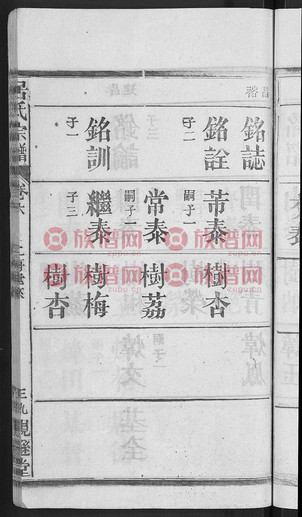 昌裕
銘誌
銘詮
子二
芾泰
嗣子一
樹杏
常泰
嗣子一
樹荔
銘訓
子一
繼泰
子三
樹梅
樹杏
呂氏宗譜
卷六
族谱网
zupu.cn